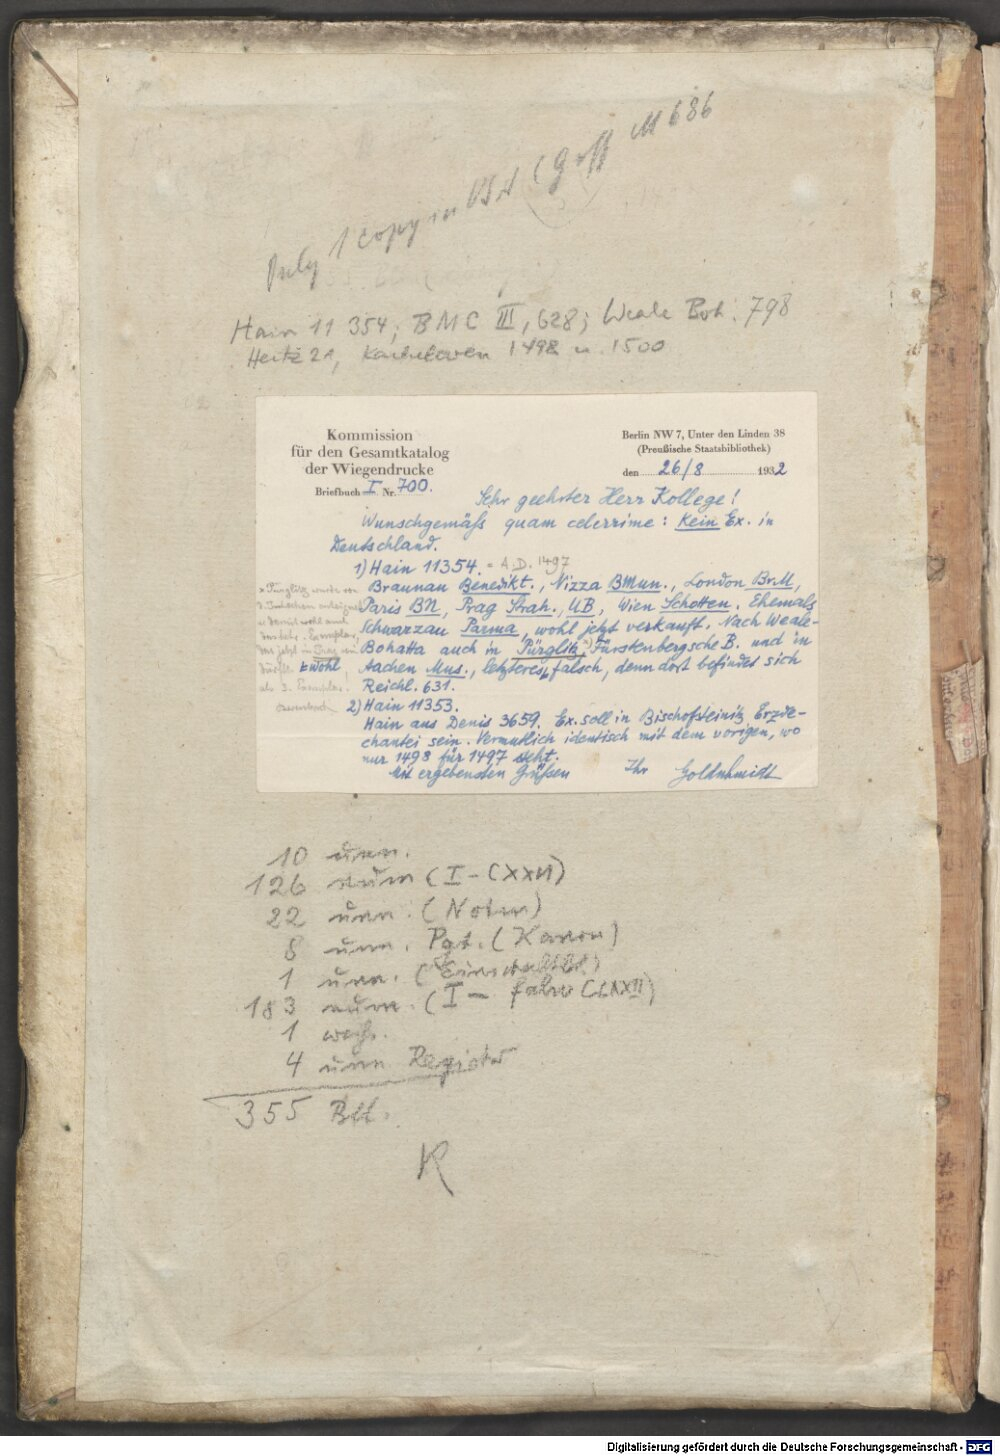 Only 1 copy in USA (Goff M 686
Hain 11 354; BMC III, 628; Weale Boh. 798
Heitz 21, Kachelofen 1498 u. 1500
Kommission
für den Gesamtkatalog
der Wiegendrucke
Briefbuch I Nr. 700.
Berlin NW 7, Unter den Linden 38
(Preußische Staatsbibliothek)
den 26/8 1932
Sehr geehrter Herr Kollege!
Wunschgemäß quam celerrime: Kein Ex. in
Deutschland.
1) Hain 11354. = A.D. 1497
Braunau Benedikt., Nizza BMun., London Br.M,
Paris BN, Prag Strah., UB, Wien Schotten. Ehemals
Schwarzau Parma, wohl jetzt verkauft. Nach Weale-
Bohatta auch in Pürglitz, Fürstenbergsche B. und in
Aachen Mus., letzteres wohl falsch, denn dort befindet sich
Reichl. 631.
2) Hain 11353.
Hain aus Denis 3659. Ex. soll in Bischofsteinitz Erzde-
chantei sein. Vermutlich identisch mit dem vorigen, wo
nur 1498 für 1497 steht.
Mit ergebensten Grüßen Ihr
* Pürglitz wurde von
als 3. Exemplar.
10 unn.
126 num (I-CXXVI)
22 unn. (Noten)
8 unn. Pgt. (Kanon)
1 unn. (Einschaltbl.)
183 num. (I- falso CLXXII)
1 weiß.
4 unn Register
355 Bll.
K
Digitalisierung gefördert durch die Deutsche Forschungsgemeinschaft - DFG